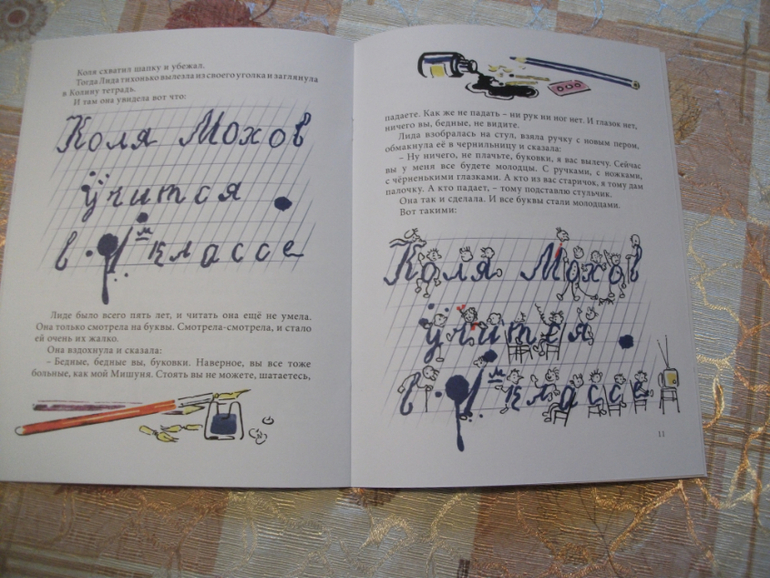 Коля схватил шапку и убежал.
Тогда Лида тихонько вылезла из своего уголка и заглянула
в Колину тетрадь.
И там она увидела вот что:
Коля Мохов
учится
в 1м классе
Лиде было всего пять лет, и читать она ещё не умела.
Она только смотрела на буквы. Смотрела-смотрела, и стало
ей очень их жалко.
Она вздохнула и сказала:
– Бедные, бедные вы, буковки. Наверное, вы все тоже
больные, как мой Мишуня. Стоять вы не можете, шатаетесь,
падаете. Как же не падать – ни рук ни ног нет. И глазок нет,
ничего вы, бедные, не видите.
Лида взобралась на стул, взяла ручку с новым пером,
обмакнула её в чернильницу и сказала:
– Ну ничего, не плачьте, буковки, я вас вылечу. Сейчас
вы у меня все будете молодцы. С ручками, с ножками,
с чёрненькими глазками. А кто из вас старичок, в тому дам
палочку. А кто падает, – тому подставлю стульчик.
Она так и сделала. И все буквы стали молодцами.
Вот такими:
Коля Мохов
учится
в 1м классе
11